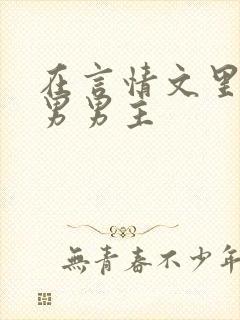 在言情文里
男男主
無青春不少年